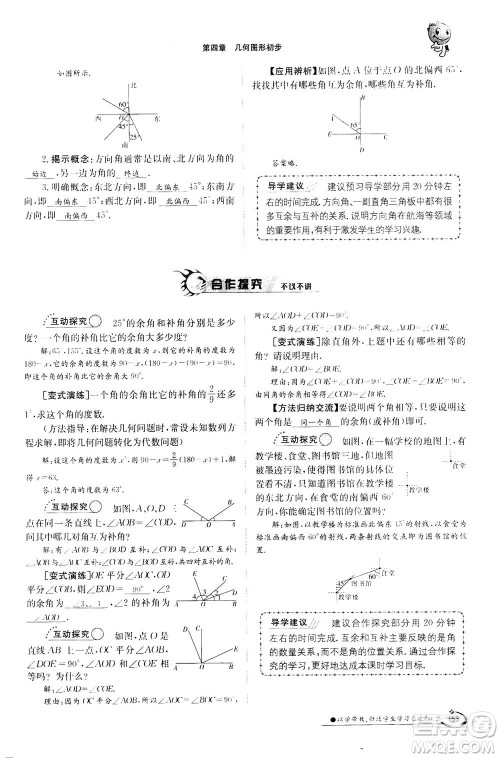 第四章　几何图形初步
如图所示.
60°
西
O
东
45°
25°
南
2. 揭示概念：方向角通常是以南、北方向为角的
始边，另一边为角的 终边 .
3. 方向角中，东北方向为 北偏东 45°；东南方
向为 南偏东 45°；西北方向为 北偏西 45°；西南方
向为 南偏西 45°.
【应用辨析】如图，点 A 位于点 O 的北偏西 65°，
那么图中有哪些角互为余角，有哪些角互为补角？
65°
O
答案略.
导学建议
建议预习导学部分用 20 分钟左
右的时间完成. 方向角、一副直角三角板中都有
很多互余与互补的关系. 说明方向角在航海等领域
的作用，有利于激发学生的学习兴趣.
合作探究 不议不讲
互动探究　25°的余角和补角分别是多少
度？一个角的补角比它的余角大多少度？
解：65°，155°. 设这个角的度数为 x，则它的补角的度数为
180－x，它的余角的度数为 90－x，180－x－(90－x)＝90，
即这个角的补角比它的余角大 90°.
【变式演练】一个角的余角比它的补角的2/9还多
1°，求这个角的度数.
（方法指导：在解决几何问题时，常常通过列
方程求解，即将几何问题转化为代数问题）
解：设这个角的度数为 x，则 90－x＝2/9(180－x)＋1，解得
x＝63. 答：略.
互动探究　如图，A、O、D 三
点在同一条直线上，∠AOB＝∠COD，
图中哪几对角互为补角？
解：∠AOB 与∠BOD 互补，∠AOC 与∠COD 互补，∠AOB
与∠AOC 互补，∠COD 与∠BOD 互补，共四对角互为补角.
【变式演练】OE 平分∠AOC，OD
平分∠BOC，则∠EOD＝ 90° ，∠2
的余角是 ∠3、∠1 ，∠2 的补角为
∠AOD .
互动探究　如图，点 O 为
直线 AB 上一点，∠AOC＝90°，
∠DOE＝90°，∠COD 与∠BOE 相等
吗？为什么？
解：∠COD＝∠BOE.
所以∠COE＋∠COD＝90°.
又因为∠COE＋∠BOE＝90°，
所以∠COD＝∠BOE.
【变式演练】除直角外，上题中还有哪些角相
等？为什么？
解：∠AOD＝∠COE.
理由：因为∠AOD＋∠COD＝90°，∠COE＋∠COD＝90°，
由同角的余角相等，得∠AOD＝∠COE.
【方法归纳交流】要说明两个角相等，可以说明
它们都是 同一个角 的余角（或补角）.
互动探究　如图，在一幅学校的地图上，有
教学楼、图书馆和食堂，但
图书馆被墨迹盖住了，只知
道图书馆在教学楼的东北
方向，在食堂的南偏西 60°
的方向，你能确定图书馆的
位置吗？
食堂
教学楼
解：能，以教学楼为顶点画北偏东 45°的射线，以食堂为顶
点画南偏西 60°的射线，两条射线的交点为图书馆的位置.
食堂
图书馆
教学楼
导学建议
建议合作探究部分用 20 分钟
左右的时间完成. 互余和互补主要反映的是角的
数量关系，而方向角主要反映的是角的位置关
系，通过探究，更好地达成本课时学习目标.
183